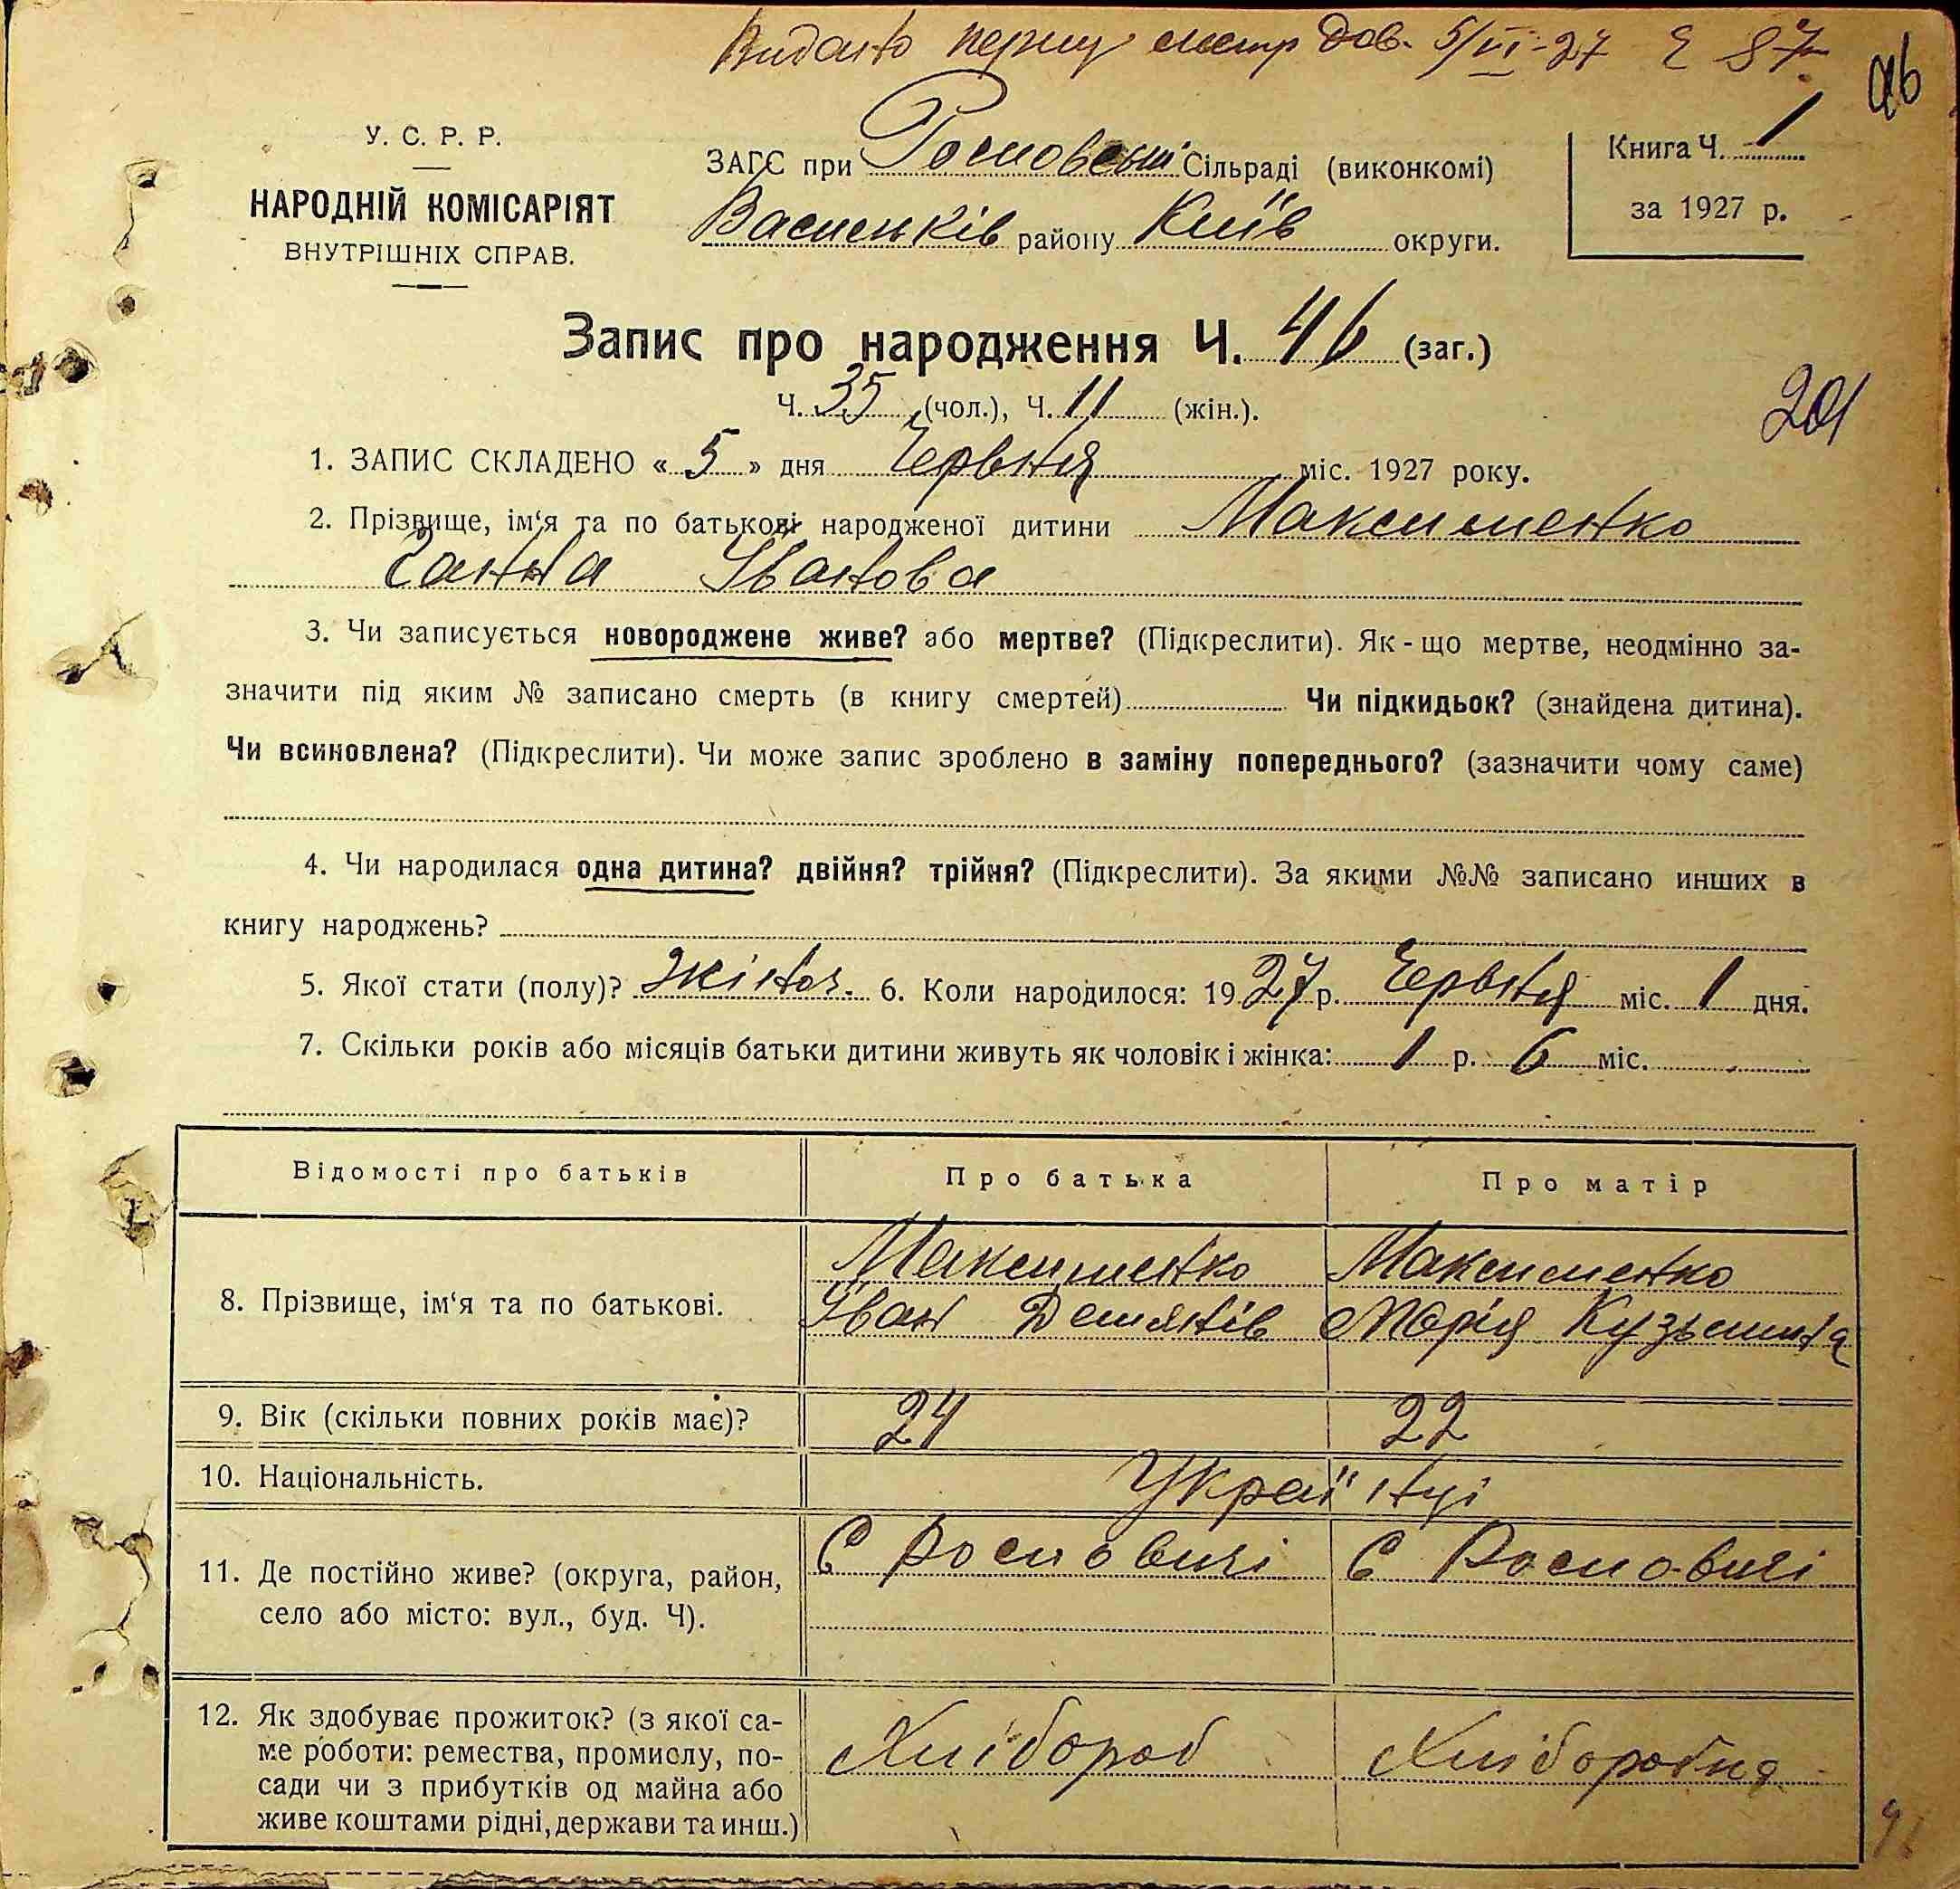 Видано першу метр дов. 5/VI-27 Е 87
46
У. С. Р. Р.
НАРОДНІЙ КОМІСАРІЯТ
ВНУТРІШНІХ СПРАВ.
ЗАГС при Росновській Сільраді (виконкомі)
Васильків району Київ округи.
Книга Ч. 1
за 1927 р.
Запис про народження Ч. 46 (заг.)
Ч. 35 (чол.), Ч. 11 (жін.).
201
1. ЗАПИС СКЛАДЕНО « 5 » дня Червня міс. 1927 року.
2. Прізвище, ім‘я та по батькові народженої дитини Максименко
Ганна Іванова
3. Чи записується новороджене живе? або мертве? (Підкреслити). Як - що мертве, неодмінно за-
значити під яким № записано смерть (в книгу смертей) Чи підкидьок? (знайдена дитина).
Чи всиновлена? (Підкреслити). Чи може запис зроблено в заміну попереднього? (зазначити чому саме)
4. Чи народилася одна дитина? двійня? трійня? (Підкреслити). За якими №№ записано инших в
книгу народжень?
5. Якої стати (полу)? жіноч. 6. Коли народилося: 1927 р. Червня міс. 1 дня.
7. Скільки років або місяців батьки дитини живуть як чоловік і жінка: 1 р. 6 міс.
Відомості про батьків Про батька Про матір
8. Прізвище, ім‘я та по батькові. Максименко Іван Демянів Максименко Марія Кузьмина
9. Вік (скільки повних років має)? 24 22
10. Національність. Українці
11. Де постійно живе? (округа, район, С Росновичі С Росновичі
село або місто: вул., буд. Ч).
12. Як здобуває прожиток? (з якої са- Хлібороб Хліборобка
ме роботи: ремества, промислу, по-
сади чи з прибутків од майна або
живе коштами рідні, держави та инш.)